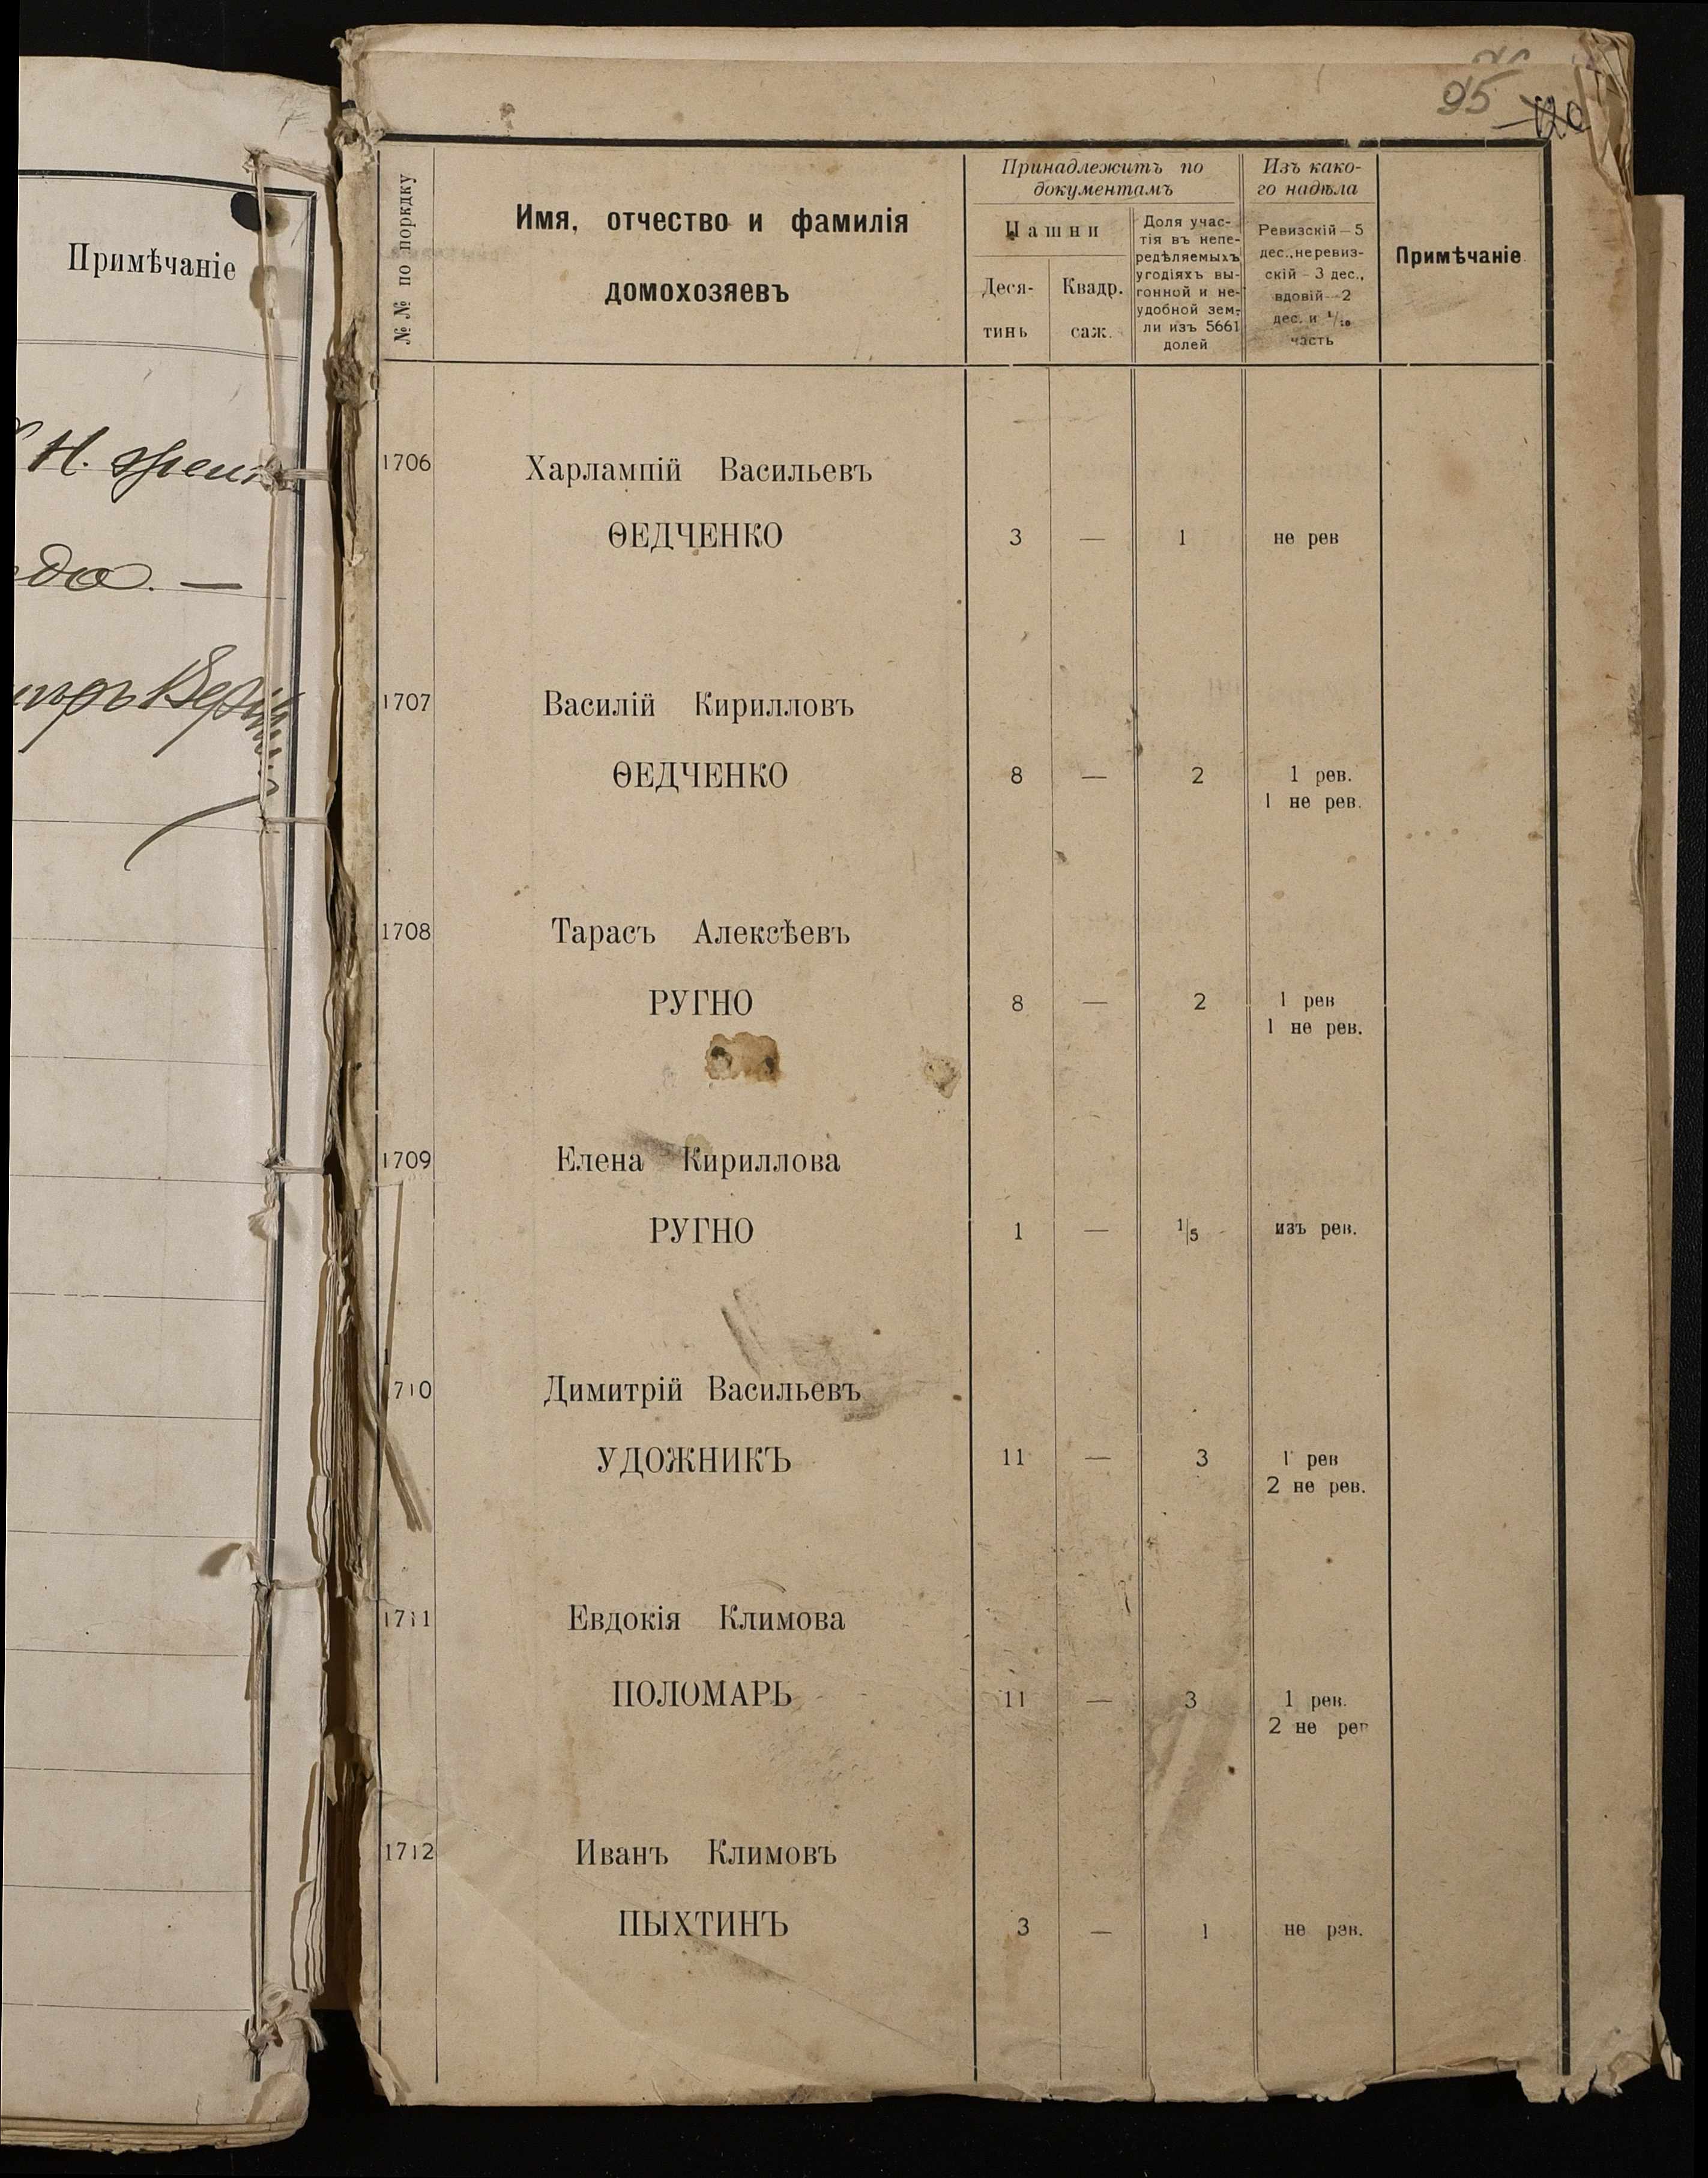 Примѣчаніе
Н.
95
№№ по порядку
Имя, отчество и фамилія
домохозяевъ
Принадлежитъ по
документамъ
Пашни
Деся-
тинъ
Квадр.
саж.
Доля учас-
тія въ непе-
редѣляемыхъ
угодіяхъ вы-
гонной и не-
удобной зем-
ли изъ 5661
долей
Изъ како-
го надѣла
Ревизскій—5
дес., неревиз-
скій—3 дес.,
вдовій—2
дес. и 1/10
часть
Примѣчаніе
1706 Харлампій Васильевъ
ѲЕДЧЕНКО 3 — 1 не рев
1707 Василій Кирилловъ
ѲЕДЧЕНКО 8 — 2 1 рев.
1 не рев.
1708 Тарасъ Алексѣевъ
РУГНО 8 — 2 1 рев
1 не рев.
1709 Елена Кириллова
РУГНО 1 — 1/5 изъ рев.
1710 Димитрій Васильевъ
УДОЖНИКЪ 11 — 3 1 рев
2 не рев.
1711 Евдокія Климова
ПОЛОМАРЬ 11 — 3 1 рев.
2 не рев
1712 Иванъ Климовъ
ПЫХТИНЪ 3 — 1 не рев.